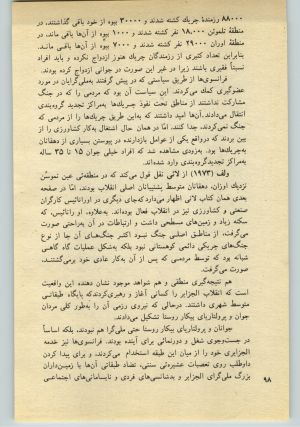 ۸۸۰۰۰ رزمندهٔ چریک کشته شدند و ۳۰۰۰۰ بیوه از خود باقی گذاشتند، در
منطقهٔ تلموئن ۱۸،۰۰۰ نفر کشته شدند و ۱۰۰۰ بیوه از آن‌ها باقی ماند. در
منطقهٔ اوران ۲۹۰۰۰ نفر کشته شدند و ۷۰۰۰ بیوه از آن‌ها باقی ماند.
بنابراین تعداد کثیری از رزمندگان چریک هنوز ازدواج نکرده و باید افراد
نسبتاً فقیری باشند زیرا در غیر این صورت در جوانی ازدواج کرده بودند.
فرانسوی‌ها از طریق سیاستی که در پیش گرفتند به‌ملی‌گرایان در مورد
عضوگیری کمک می‌کردند. این سیاست آن بود که مردمی را که در جنگ
مشارکت نداشتند از مناطق تحت نفوذ چریک‌ها به‌مراکز تجدید گروه‌بندی
انتقال می‌دادند. آن‌ها امید داشتند که به‌این طریق چریک‌ها را از مردمی که
جنگ نمی‌کردند، جدا کنند، امّا در همان حال اشتغال به‌کار کشاورزی را از
بین بردند که درواقع یکی از عوامل بازدارنده در پیوستن بسیاری از دهقانان
به‌چریک‌ها بود. به‌زودی مشاهده شد که افراد خیلی جوان ۱۵ تا ۳۵ ساله
به‌مراکز تجدیدگروه‌بندی وارد شده‌اند.
ولف (۱۹۷۳) از لانی نقل قول می‌کند که در منطقه‌ئی عین تموشن
نزدیک اوران، دهقانان متوسط پشتیبانان اصلی انقلاب بودند. امّا در صفحه
بعدی همان کتاب لانی اظهار می‌داردکه‌جای دیگری در اورانائیس کارگران
صنعتی و کشاورزی نیز در انقلاب فعال بوده‌اند. به‌علاوه، او رانائیس، که
سکنه زیاد و زمین‌های مسطحی داشت و ارتباطات در آن به‌راحتی صورت
می‌گرفت، از مناطق اصلی جنگ نبود اکثر جنگ‌های آن جا از نوع
جنگ‌های چریکی دائمی کوهستانی نبود بلکه به‌شکل عملیات گاه گاهی
شبانه بود که توسط مردمی که پس از آن به‌کار عادی خود برمی‌گشتند،
صورت می‌گرفت.
هم نتیجه‌گیری منطقی و هم شواهد موجود نشان دهنده این واقعیت
است که انقلاب الجزایر را کسانی آغاز و رهبری‌کردندکه پایگاه طبقاتی
متوسط شهری داشتند. درحالی که نیروی رزمی آن را به‌طور کلی مردان
جوان و پرولتاریای بیکار روستا تشکیل می‌دادند.
جوانان و پرولتاریای بیکار روستا حتی ملی‌گرا هم نبودند، بلکه اساساً
در جست‌وجوی شغل و دورنمائی برای آینده بودند. فرانسوی‌ها نیز خدمه
الجزایری خود را از میان این طبقه استخدام می‌کردند، و برای پیدا کردن
داوطلب روی تعصبات عشیره‌ئی سنتی، تضاد طبقاتی آن‌ها با زمین‌داران
بزرگ ملی‌گرای الجزایر و بدشانسی‌های فردی و نابسامانی‌های اجتماعی
۹۸